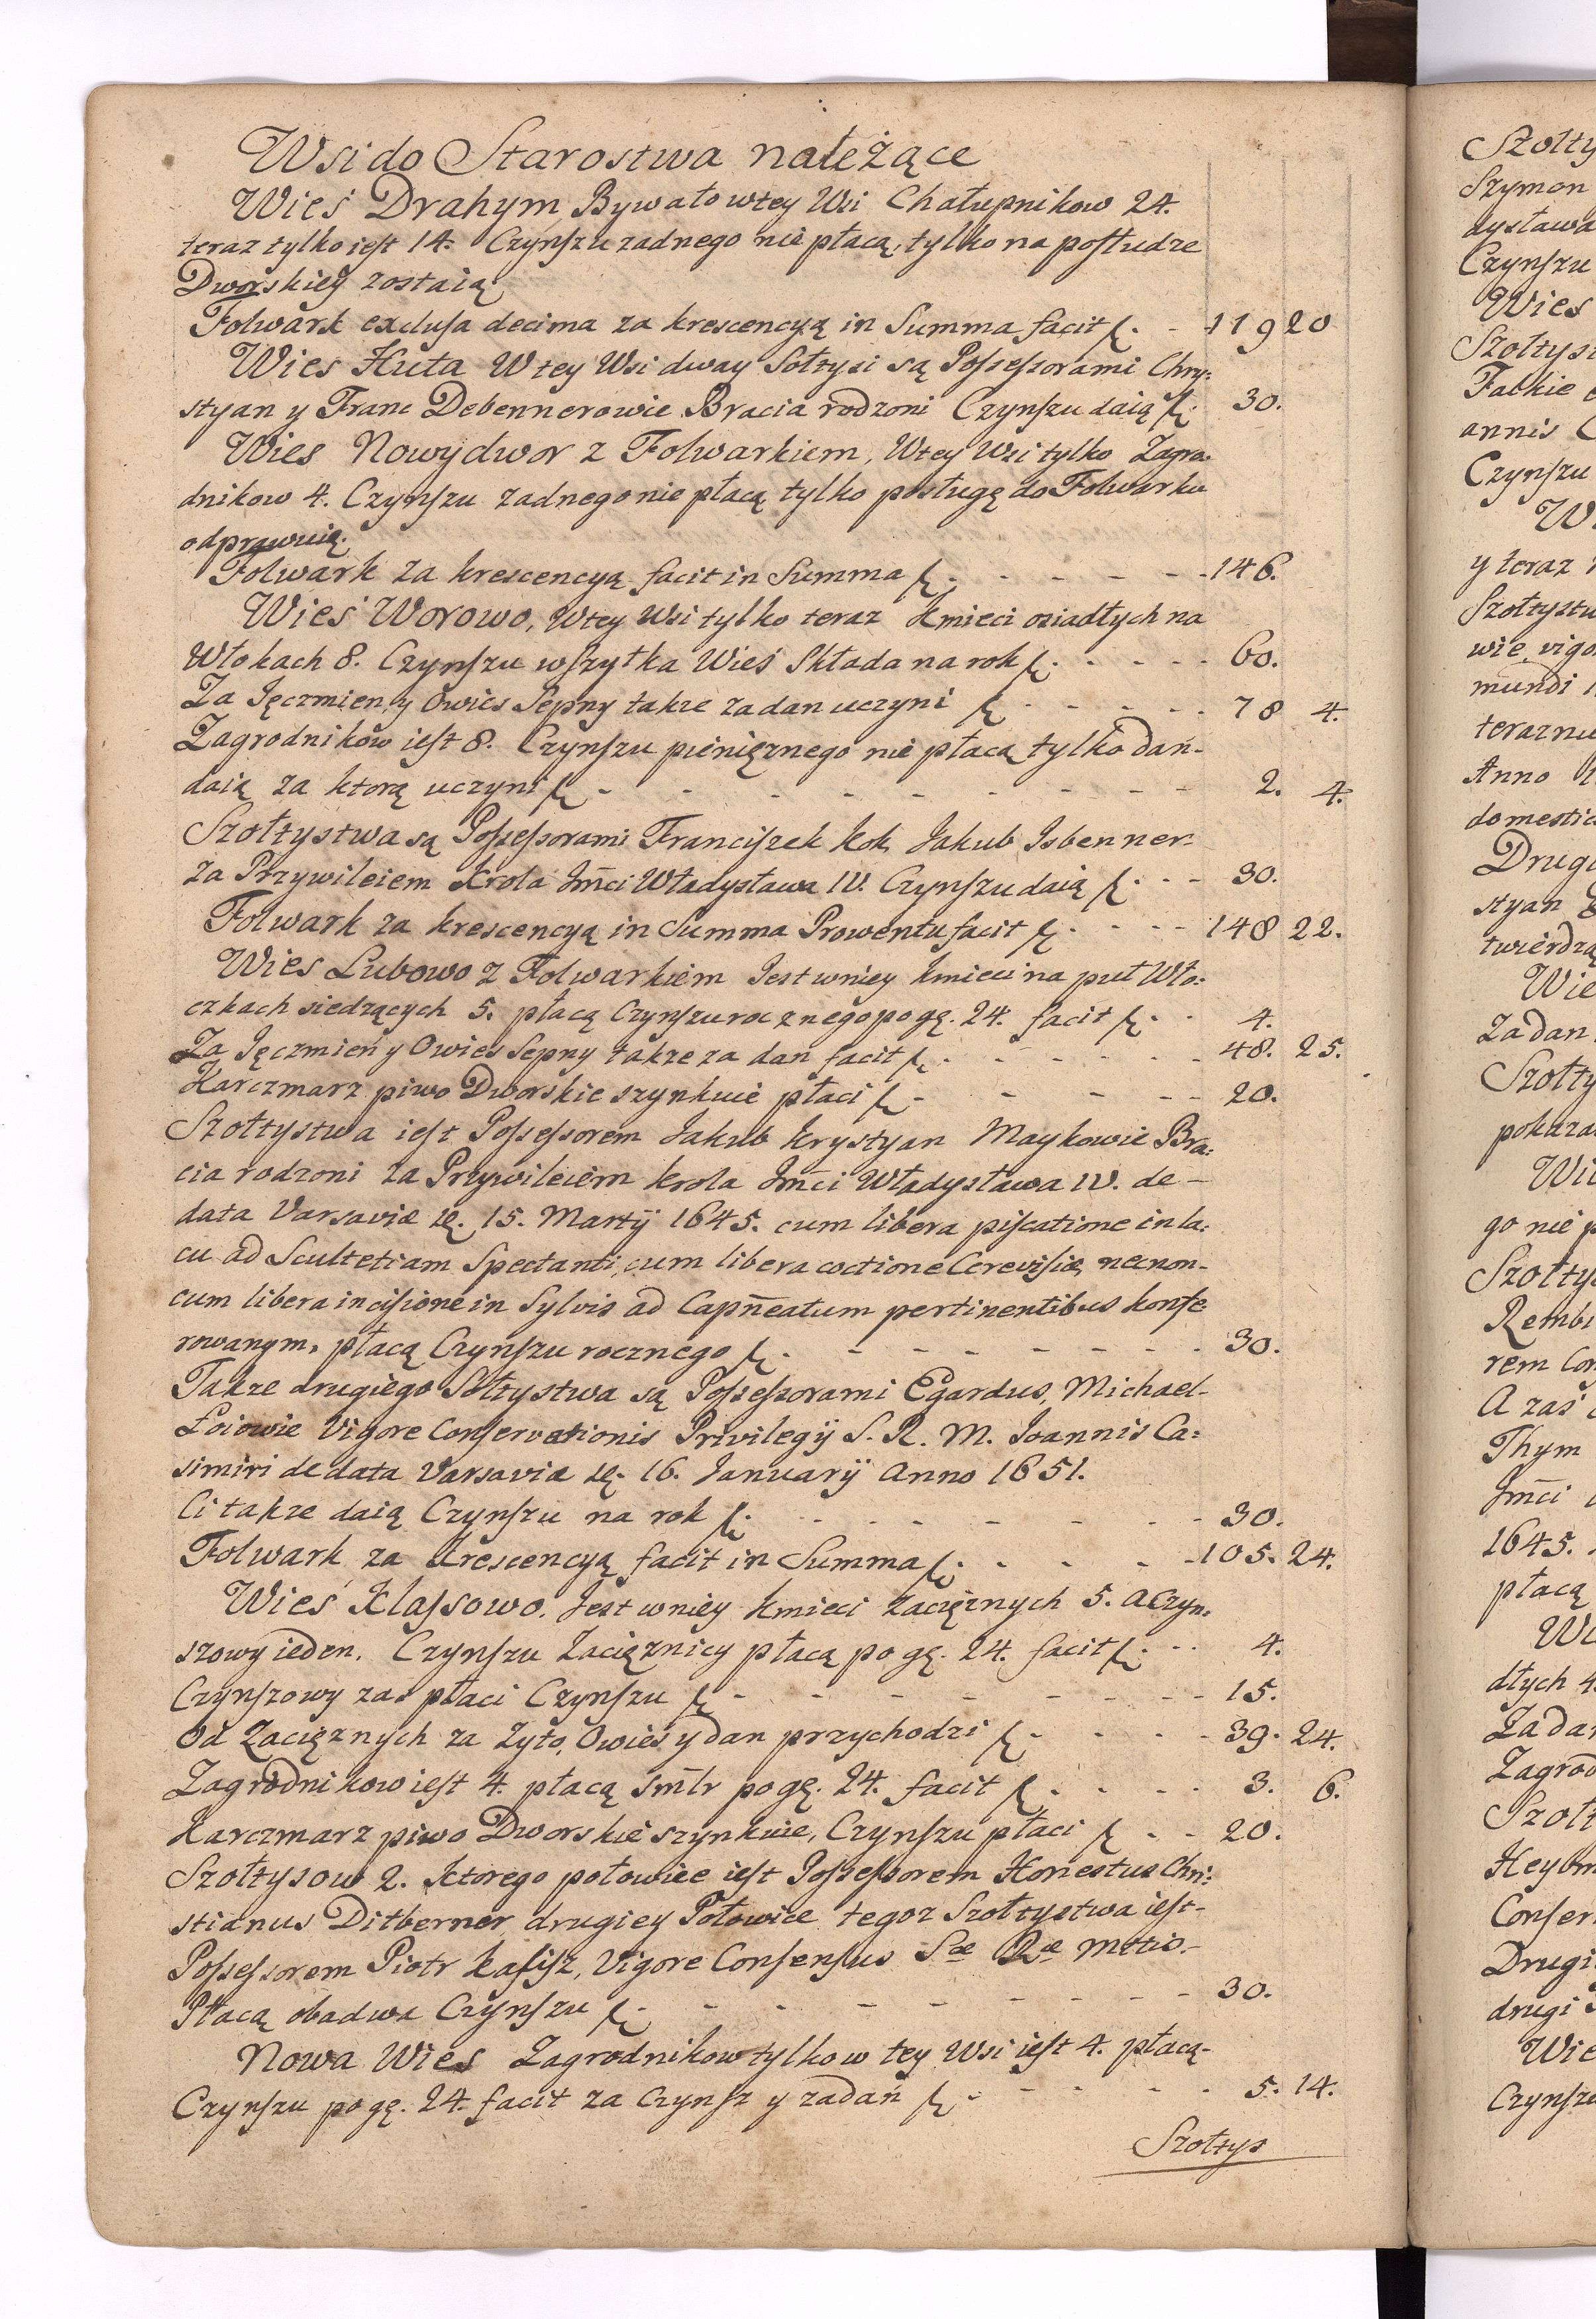 Wsi do Starostwa należące
Wieś Drahym, Bywało w tey Wsi Chałupnikow 24.
teraz tylko iest 14. Czynszu zadnego nie płacą, tylko na posłudze
Dworskiey zostaią
Folwark exclusa decima za krescencyą in Summa facit f. - 119 20
Wies Huta W tey Wsi dway Sołtysi są Possessorami Chry:
styan y Franc Debennerowie Bracia rodzoni Czynszu daią f. 30.
Wies Nowydwor z Folwarkiem, W tey Wsi tylko Zagro:
dnikow 4. Czynszu zadnego nie płacą tylko posługę do Folwarku
odprawuią.
Folwark za krescencyą facit in Summa f. - - - - - - 146.
Wieś Worowo, W tey Wsi tylko teraz Kmieci osiadłych na
Włokach 8. Czynszu wszytka Wieś Składa na rok f. - - - - 60.
Za Jęczmien, y Owies Sepny takze za dan uczyni f. - - - - 78 4.
Zagrodnikow iest 8. Czynszu pienięznego nie płacą tylko dań-
daią za ktorą uczyni f. - - - - - - - - - 2. 4.
Szołtystwa są Possessorami Franciszek Kok, Jakub Isbenner.
za Przywileiem Krola Jm̃ci Władysława IV. Czynszu daią f. - - - 30.
Folwark za krescencyą in Summa Prowentu facit f. - - - - 148 22.
Wies Lubowo z Folwarkiem Jest w niey kmieci na puł Wło:
czkach siedzących 5. płacą Czynszu rocznego po gę. 24. facit f. - - 4.
Za Jęczmień y Owies Sepny takze za dan facit f. - - - - - - 48. 25.
Karczmarz piwo Dworskie szynkuie płaci f. - - - - - 20.
Szołtystwa iest Possessorem Jakub Krystyan Maykowie Bra:
cia rodzoni za Przywileiem krola Jm̃ci Władysława IV. de -
data Varsaviæ d. 15. Martÿ 1645. cum libera piscatione in la:
cu ad Scultetiam Spectanti, cum libera coctione Cerevisiæ, necnon-
cum libera incisione in Sylvis ad Capñeatum pertinentibus konfe
rowanym, płacą Czynszu rocznego f. - - - - - - - 30.
Takze drugiego Sołtystwa są Possessorami Egardus, Michael-
Łoiowie Vigore Conservationis Privilegÿ S. R. M. Joannis Ca:
simiri de data Varsaviæ d. 16. Januarÿ Anno 1651.
Ci takze daią Czynszu na rok f. - - - - - - - 30.
Folwark za krescencyą facit in Summa f. - - - - 105. 24.
Wieś Klassowo. Jest w niey kmieci zacięznych 5. a Czyn:
szowy ieden. Czynszu Zacięznicy płacą po gę. 24. facit f. - - 4.
Czynszowy zas płaci Czynszu f. - - - - - - - - 15.
Od Zacięznych za zyto, Owies, y dan przychodzi f. - - - - 39. 24.
Zagrodnikow iest 4. płacą Sm̃lr po gę. 24. facit f. - - - - 3. 6.
Karczmarz piwo Dworskie szynkuie, Czynszu płaci f. - - 20.
Szołtysow 2. ktorego połowice iest Possessorem Honestus Chri:
stianus Ditberner drugiey Połowice tegoz Szołtystwa iest-
Possessorem Piotr Kasisz, Vigore Consensus Sæ Ræ Mttis.-
Płacą obadwa Czynszu f. - - - - - - - - 30.
Nowa Wies Zagrodnikow tylko w tey Wsi iest 4. płacą-
Czynszu po gę. 24. facit za Czynsz y za dań f. - - - - - 5. 14.
Szołtys
Szołty
Szymon
dysława
Czynszu
Wies
Szołtys
Falkie
annis
Czynszu
y teraz
Szołtystw
wie, vigo
mundi
Anno
domestic
Drugi
styan
twierdzą
Wie
Za dan
Szołty
pokaza
go nie p
Szołtys
Rembi
rem Con
A zaś
Thym
Jm̃ci
1645.
płacą
dłych 4
Za dan
Zagrod
Szołt
Heybn
Conser
Drugi
drugi
Wie
Czynszu